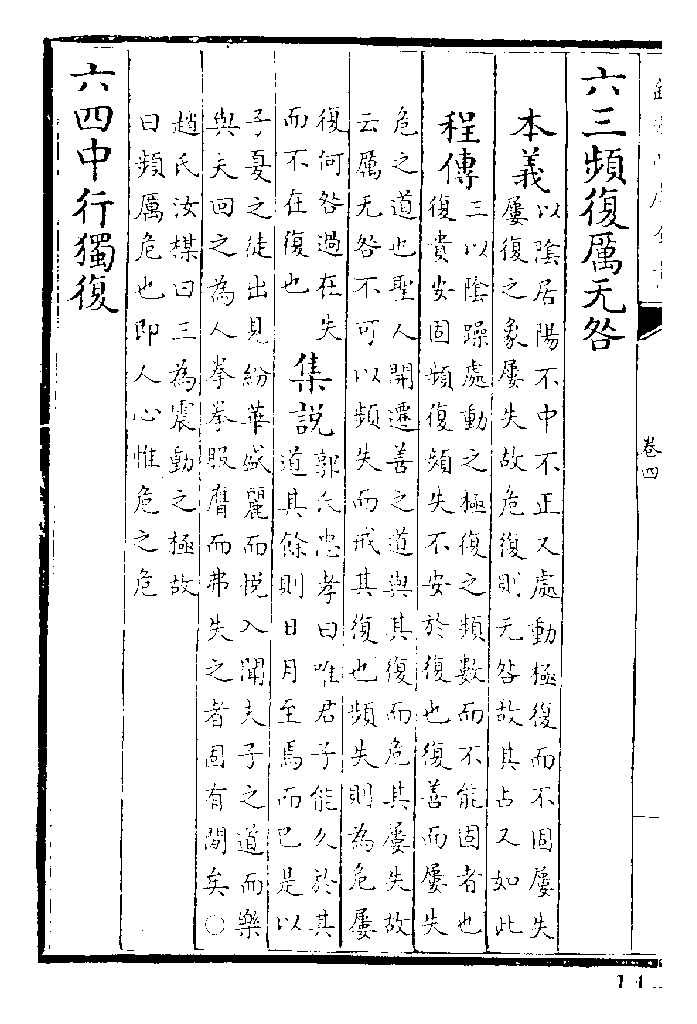 卷四
六三頻復厲无咎
本義以陰居陽不中不正又處動極復而不固屢失
屢復之象屢失故危復則无咎故其占又如此
程傳三以陰躁處動之極復之頻數而不能固者也
復貴安固頻復頻失不安於復也復善而屢失
危之道也聖人開遷善之道與其復而危其屢失故
云厲无咎不可以頻失而戒其復也頻失則為危屢
復何咎過在失
而不在復也
集說郭氏忠孝曰唯君子能久於其
道其餘則日月至焉而已是以
子夏之徒出見紛華盛麗而悅入聞夫子之道而樂
與夫回之為人拳拳服膺而弗失之者固有間矣○
趙氏汝楳曰三為震動之極故
曰頻厲危也即人心惟危之危
六四中行獨復